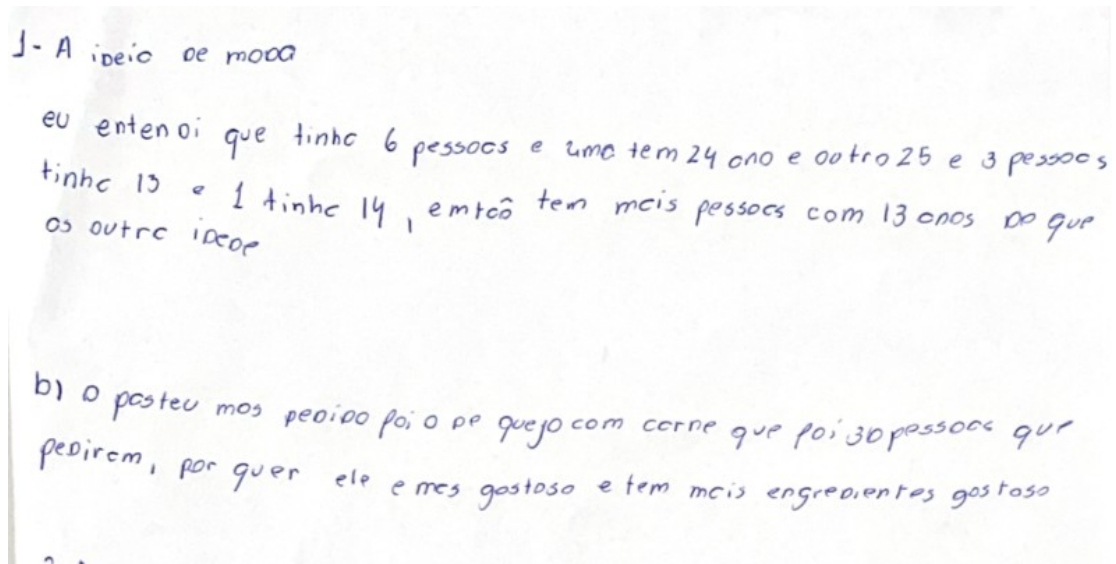 1- A ideia de moda
eu entendi que tinha 6 pessoas e uma tem 24 ano e outro 25 e 3 pessoas
tinha 13 e 1 tinha 14, emtão tem mais pessoas com 13 anos do que
as outra idade
b) o pasteu mas pedido foi o de quejo com carne que foi 30 pessoas que
pediram, por quer ele e mas gostoso e tem mais engredientes gostoso